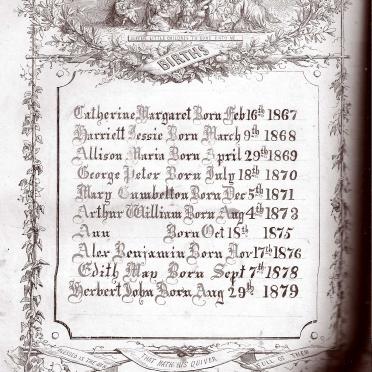 SUFFER LITTLE CHILDREN TO COME UNTO ME
BIRTHS
Catherine Margaret Born Feb 16th 1867
Harriett Jessie Born March 9th 1868
Allison Maria Born April 29th 1869
George Peter Born July 18th 1870
Mary Cumbelton Born Dec 5th 1871
Arthur William Born Aug 4th 1873
Ann Born Oct 18th 1875
Alex Benjamin Born Nov 17th 1876
Edith May Born Sept 7th 1878
Herbert John Born Aug 29th 1879
BLESSED IS THE
THAT HATH HIS QUIVER
FULL OF THEM